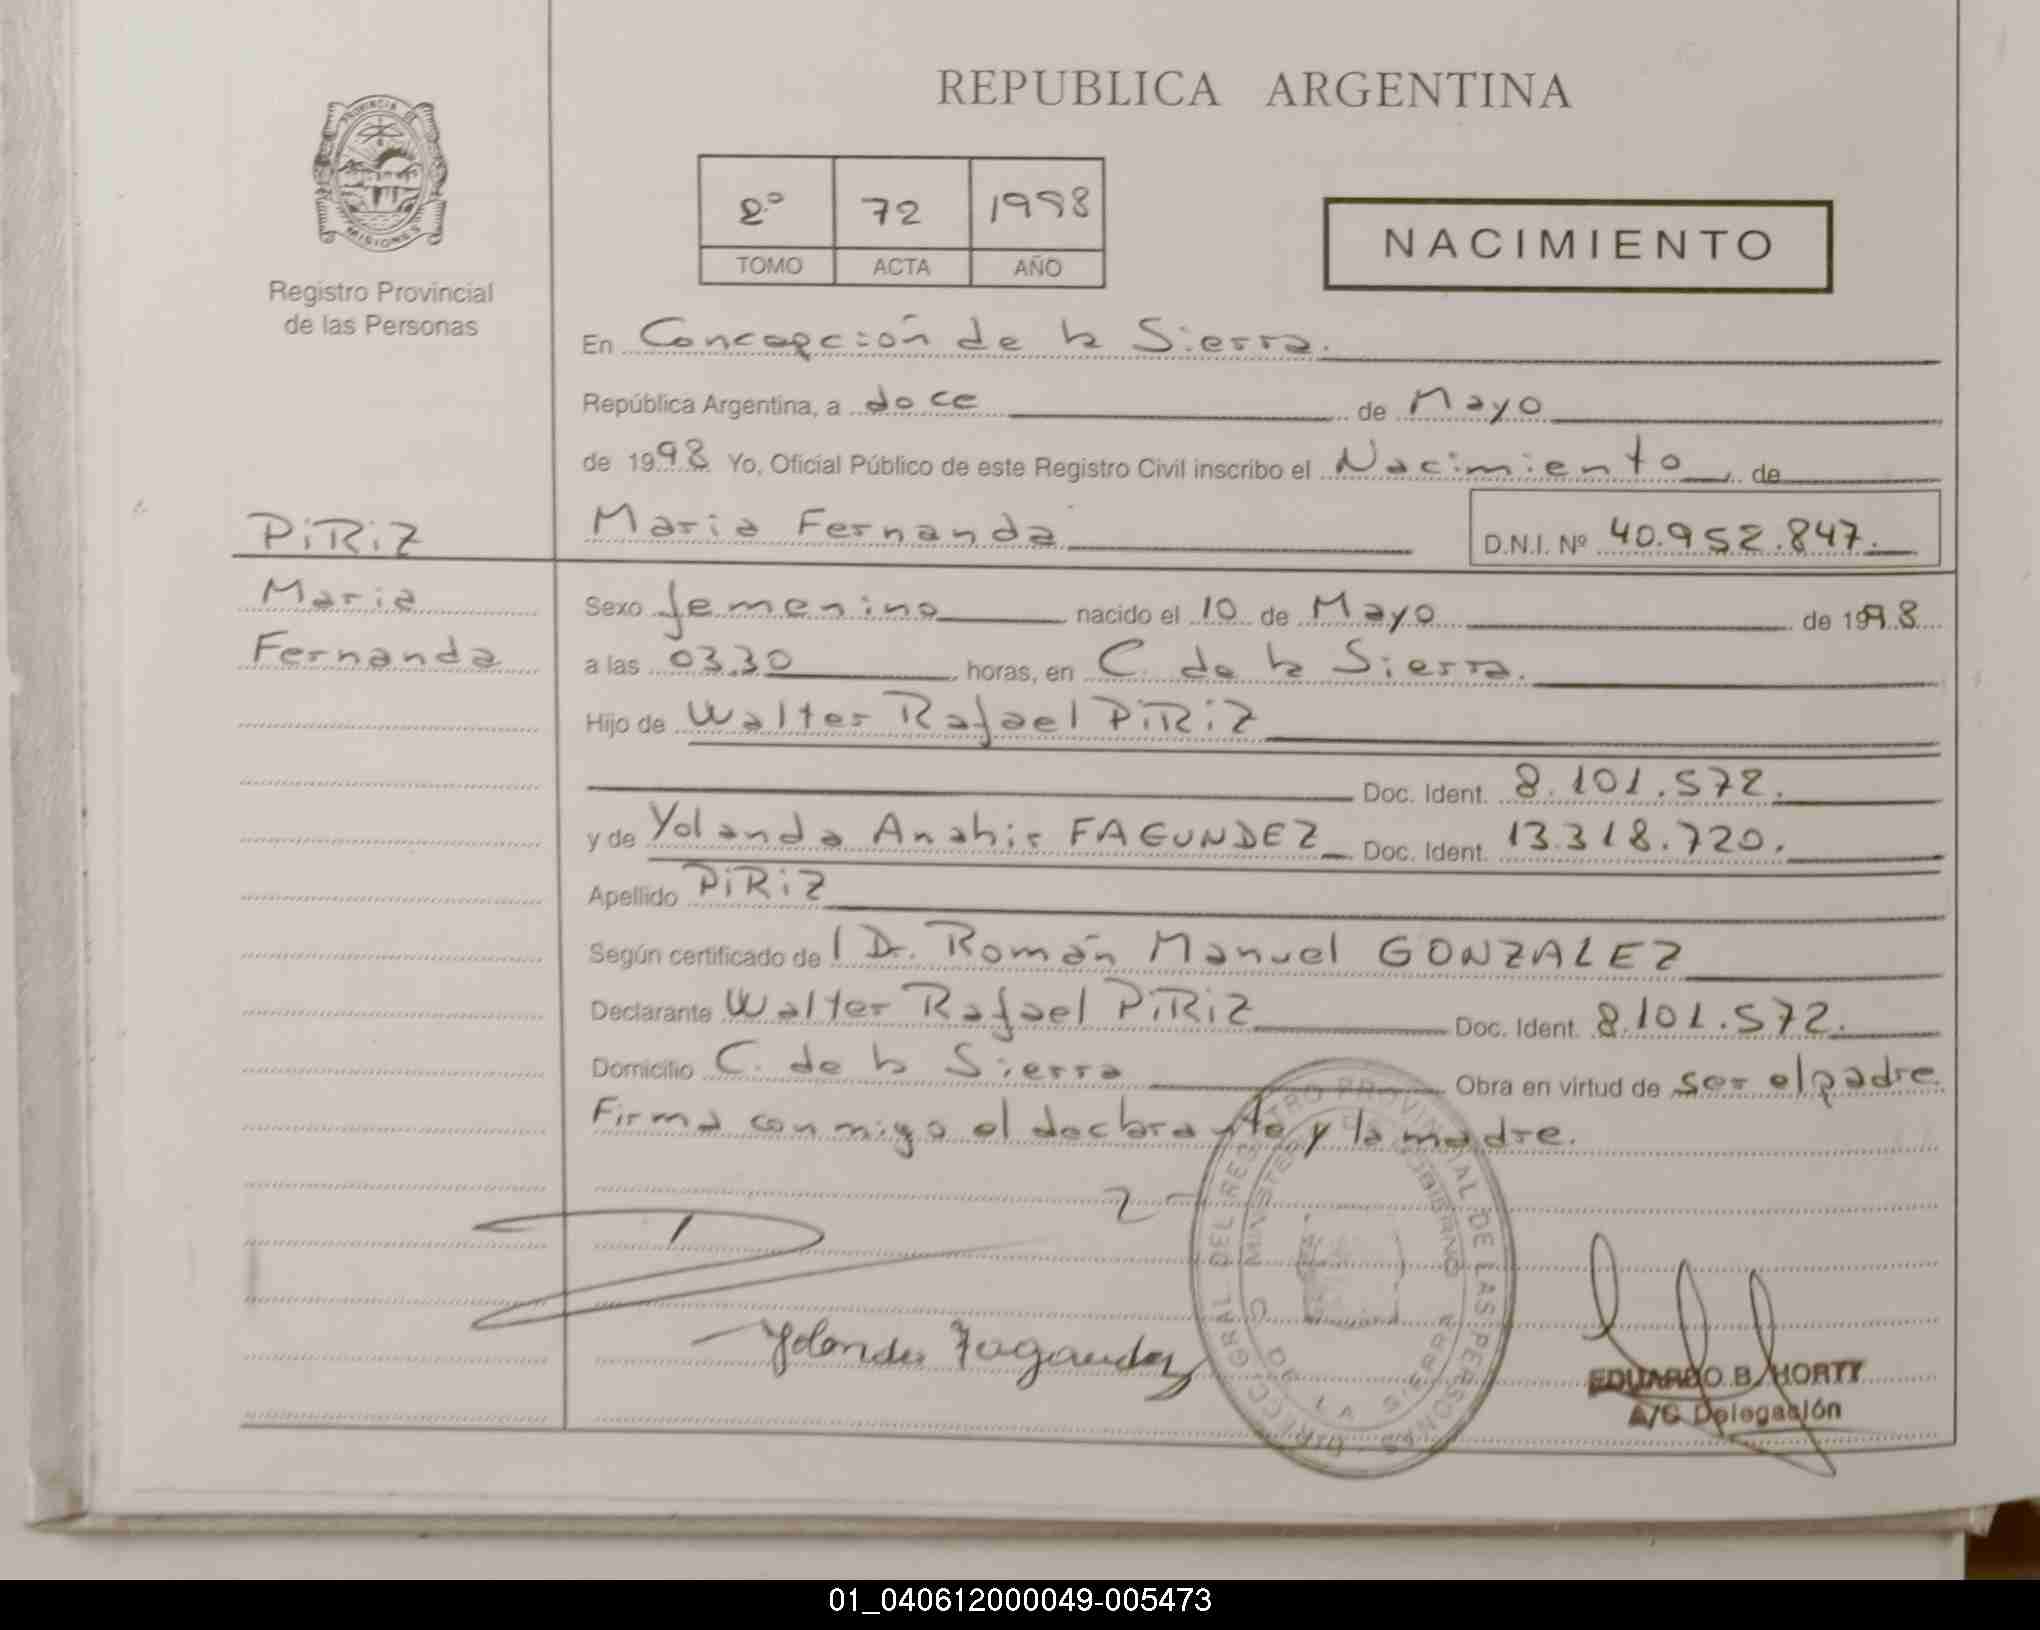 REPUBLICA ARGENTINA
PROVINCIA DE
MISIONES
Registro Provincial
de las Personas
2º 72 1998
TOMO ACTA AÑO
NACIMIENTO
En Concepción de la Sierra.
República Argentina, a doce de Mayo
de 1998 Yo, Oficial Público de este Registro Civil inscribo el Nacimiento, de
PiRiZ
Maria Fernanda D.N.I. Nº 40.952.847.
Maria
Fernanda
Sexo femenino nacido el 10 de Mayo de 1998
a las 03.30 horas, en C. de la Sierra.
Hijo de Walter Rafael PiRiZ
Doc. Ident. 8.101.572.
y de Yolanda Anahir FAGUNDEZ Doc. Ident. 13.318.720.
Apellido PiRiZ
Según certificado del Dr. Román Manuel GONZALEZ
Declarante Walter Rafael PiRiZ Doc. Ident. 8.101.572.
Domicilio C. de la Sierra Obra en virtud de ser el padre
Firma conmigo el declarante y la madre.
DIRECC. GRAL. DEL REGISTRO PROVINCIAL DE LAS PERSONAS
MINISTERIO DE GOBIERNO
C. DE LA SIERRA
Yolanda Fagundez
EDUARDO B. HORTY
A/C Delegación
01_040612000049-005473